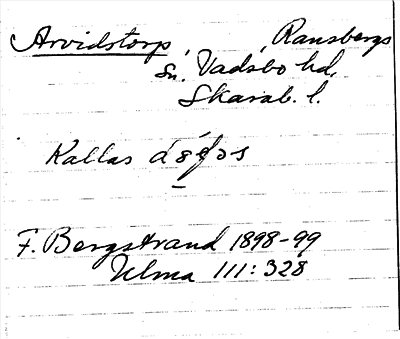 Arvidstorp, Ransbergs
sn. Vadsbo hd,
Skarab. l.
Kallas
F. Bergstrand 1898-99
Ulma 111: 328